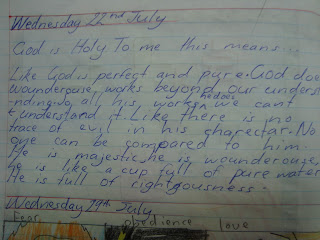 Wednesday 22nd July
God is Holy To me this means...
Like God is perfect and pure. God doe
wounderouse works beyond our underst
-nding. So all his works he does we cant
understand it. Like there is no
trace of evil in his charectar. No
one can be compared to him.
He is majestic he is wounderouse,
he is like a cup full of pure water
He is full of rightgousness.
Wednesday 29th July
Fear obedience love